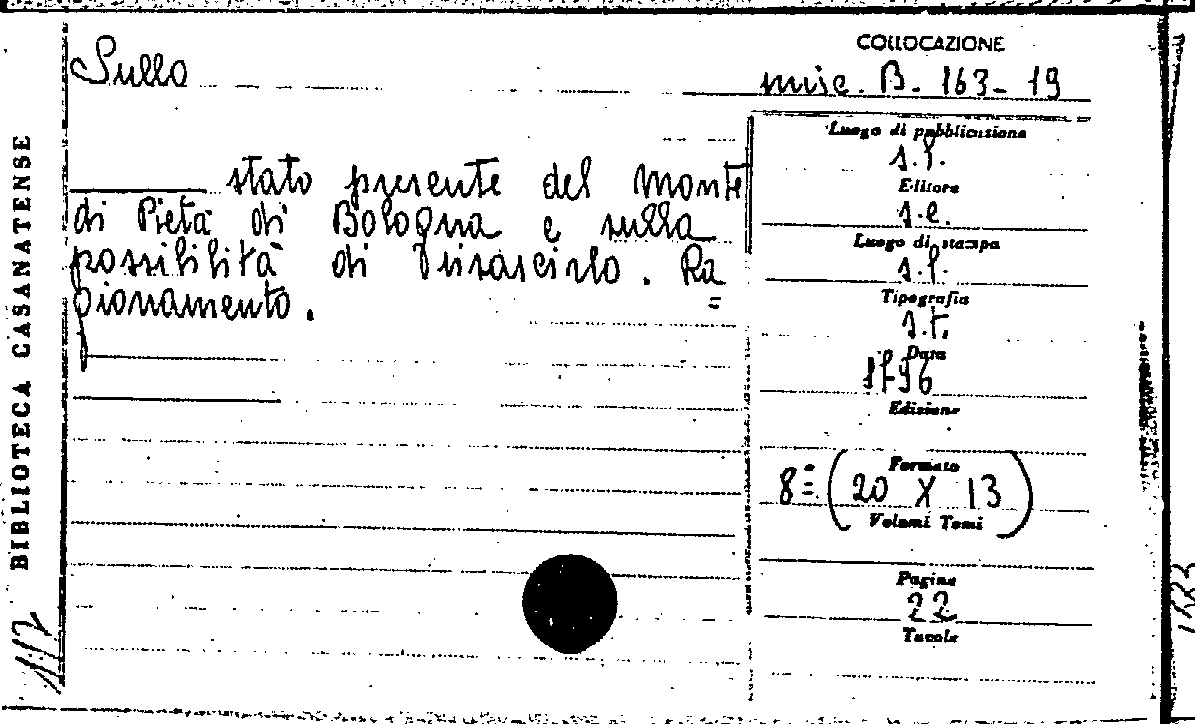 Sullo
COLLOCAZIONE
misc. B. 163-19
stato presente del Monte
di Pietà di Bologna e sulla
possibilità di
Ra=
gionamento.
Luogo di pubblicazione
s.l.
Editore
s.e.
Luogo di stampa
s.l.
Tipografia
s.t.
Data
1796
Edizione
Formato
8= (20 X 13)
Volumi Tomi
Pagine
22
Tavole
BIBLIOTECA CASANATENSE